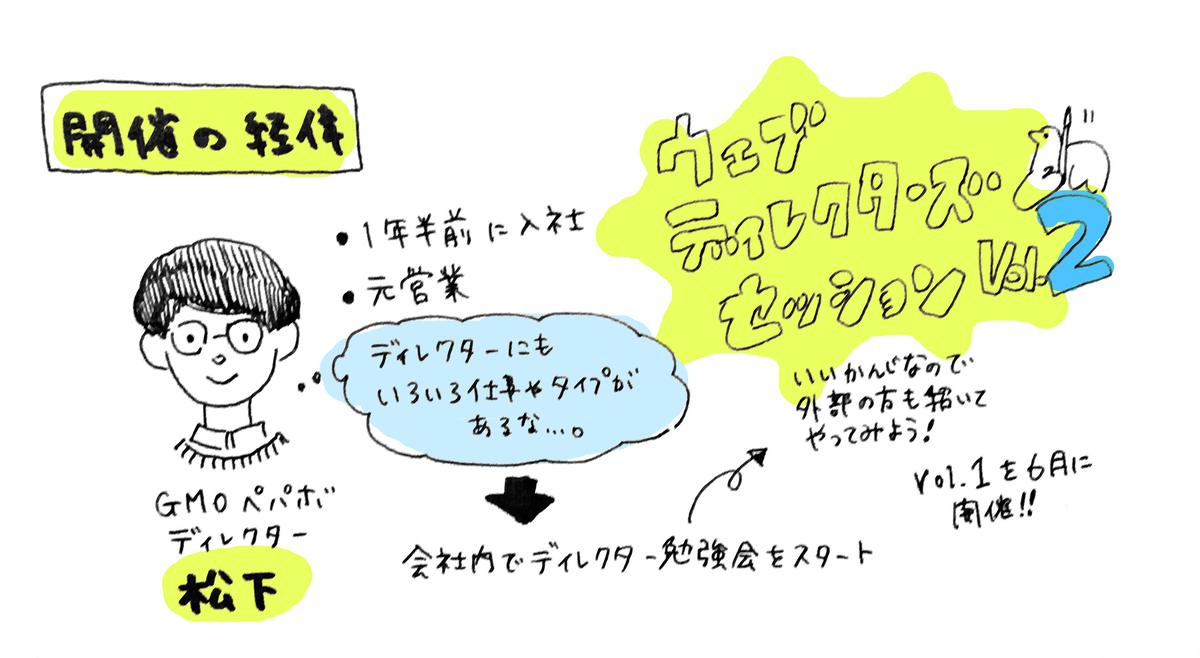 開催の経緯
ウェブ
ディレクターズ
セッション Vol.2
・1年半前に入社
・元営業
ディレクターにも
いろいろ仕事やタイプが
あるな…。
GMOペパボ
ディレクター
松下
会社内でディレクター勉強会をスタート
いいかんじなので
外部の方も招いて
やってみよう!
vol.1を6月に
開催!!